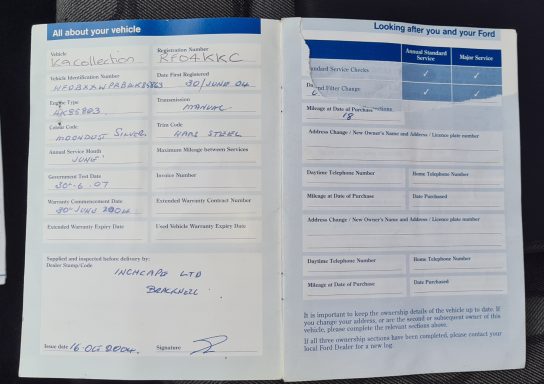 All about your vehicle
Vehicle
Ka collection
Registration Number
KF04KKC
Vehicle Identification Number
Date First Registered
30/JUNE 04
Engine Type
4K85883
Transmission
MANUAL
Colour Code
MOONDUST SILVER
Trim Code
HAAS STEEL
Annual Service Month
JUNE
Maximum Mileage between Services
Government Test Date
30-6-07
Invoice Number
Warranty Commencement Date
30-JUNE 2004
Extended Warranty Contract Number
Extended Warranty Expiry Date
Used Vehicle Warranty Expiry Date
Supplied and inspected before delivery by:
Dealer Stamp/Code
INCHCAPE LTD
BRACKNELL
Issue date 16 Oct 2004.
Signature
Looking after you and your Ford
Annual Standard Service
Major Service
Standard Service Checks
Filter Change
Mileage at Date of Purchase
18
Address Change / New Owner's Name and Address / Licence plate number
Daytime Telephone Number
Home Telephone Number
Mileage at Date of Purchase
Date Purchased
Address Change / New Owner's Name and Address / Licence plate number
Daytime Telephone Number
Home Telephone Number
Mileage at Date of Purchase
Date Purchased
It is important to keep the ownership details of the vehicle up to date. If
you change your address, or are the second or subsequent owner of this
vehicle, please complete the relevant sections above.
If all three ownership sections have been completed, please contact your
local Ford Dealer for a new log.